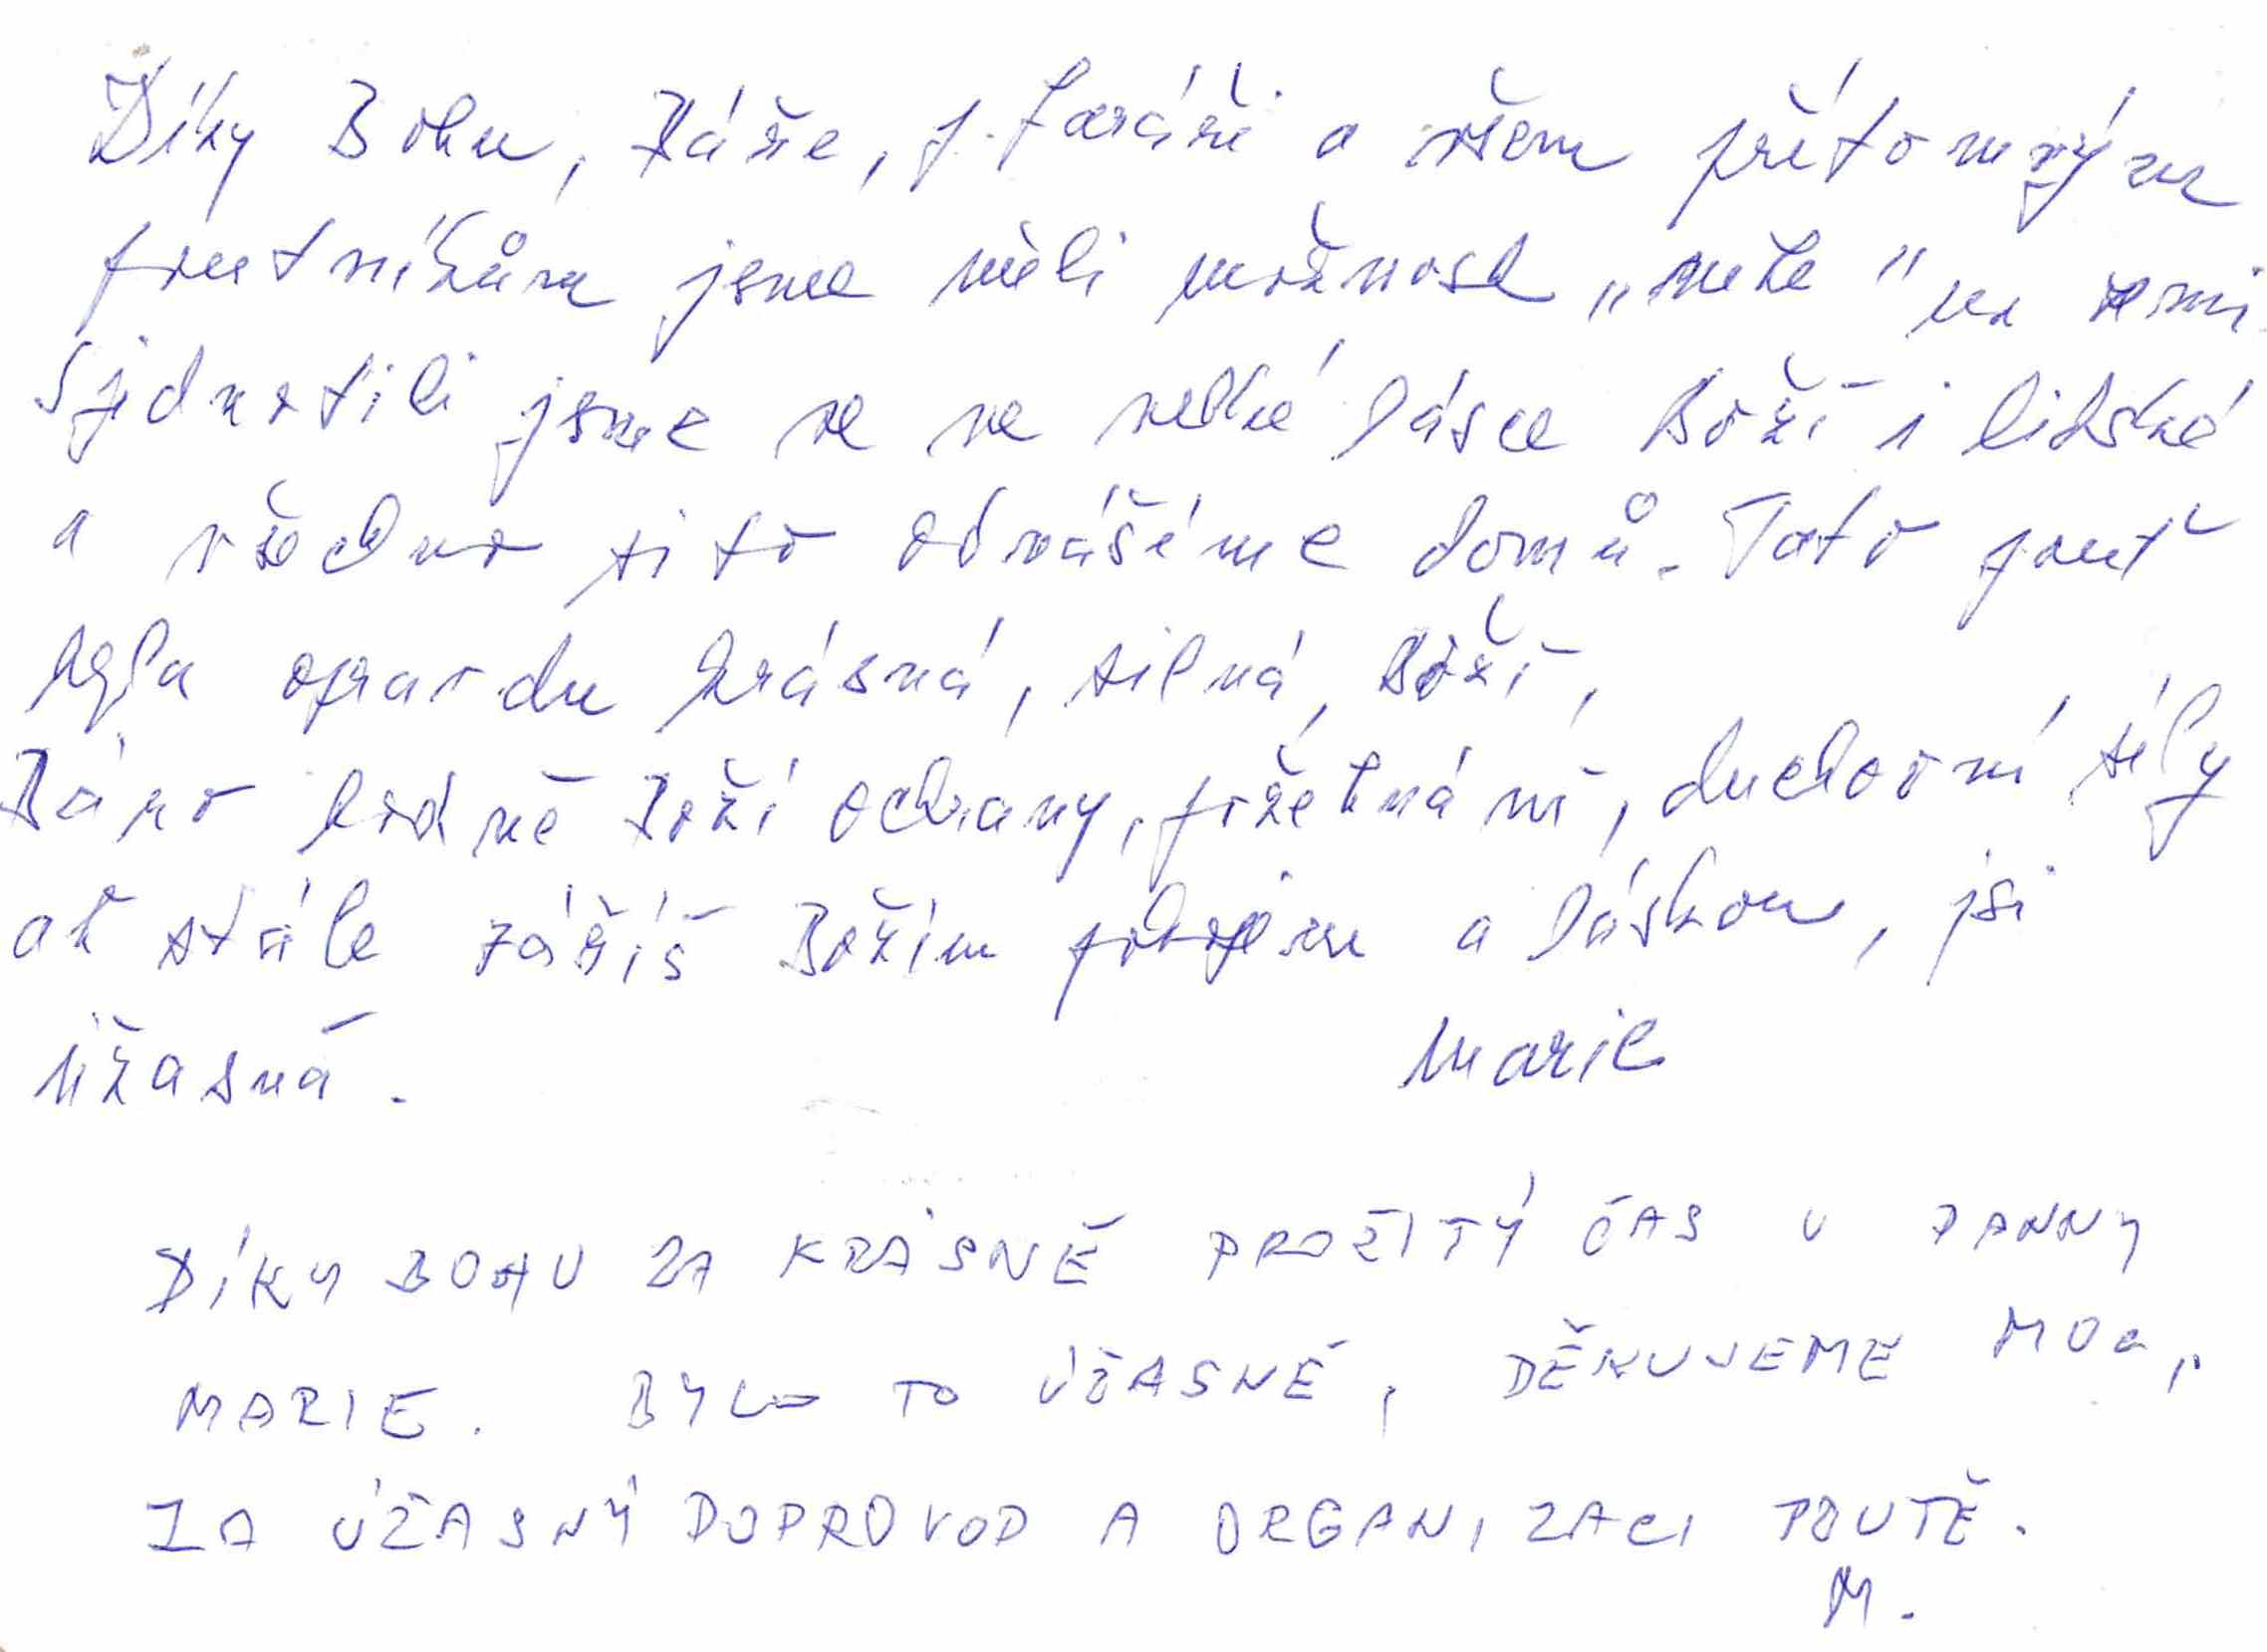 Díky Bohu, Báře, p. faráři a všem přítomným
poutníkům jsme měli možnost „nebe" na zemi.
Sjednotili jsme se ve velké lásce Boží i lidské
a všechno si to odnášíme domů. Tato pouť
byla opravdu krásná, silná, Boží,
Báro hodně Boží ochrany, požehnání, duchovní síly
ať stále záříš Božím pokojem a láskou, jsi
úžasná. Marie
DÍKY BOHU ZA KRÁSNĚ PROŽITÝ ČAS U PANNY
MARIE. BYLO TO ÚŽASNÉ, DĚKUJEME MOC,
ZA ÚŽASNÝ DOPROVOD A ORGANIZACI POUTĚ.
M.